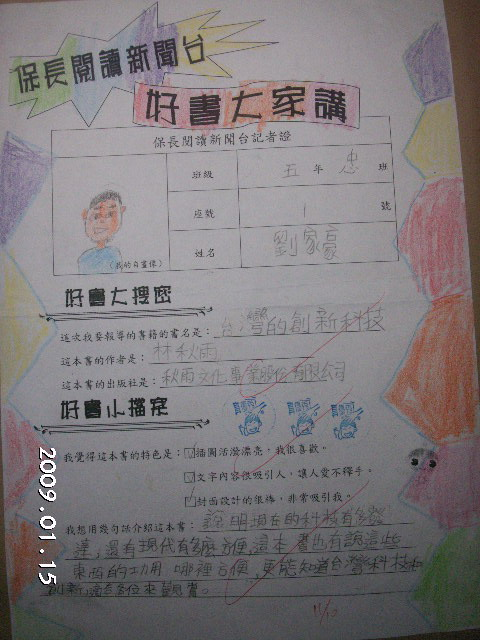 保長閱讀新聞台
好書大家講
保長閱讀新聞台記者證
班級 五 年 忠 班
座號 1 號
姓名 劉家豪
(我的自畫像)
好書大搜密
這次我要報導的書籍的書名是：台灣的創新科技
這本書的作者是：林秋雨
這本書的出版社是：秋雨文化事業股份有限公司
好書小檔案
我覺得這本書的特色是：☑插圖活潑漂亮，我很喜歡。
☑文字內容很吸引人，讓人愛不釋手。
☑封面設計的很棒，非常吸引我。
我想用幾句話介紹這本書：說明現在的科技有多發
達，還有現代有多麼方便這本書也有說這些
東西的功用哪裡方便，更能知道台灣科技和
創新適合各位來觀賞。
2009.01.15